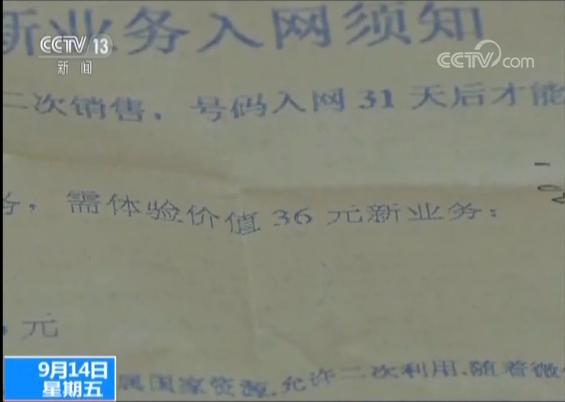 CCTV 13
新闻
CCTV.com
新业务入网须知
二次销售，号码入网31天后才能
务，需体验价值36元新业务：
元
属国家资源，允许二次利用，随着微
9月14日
星期五